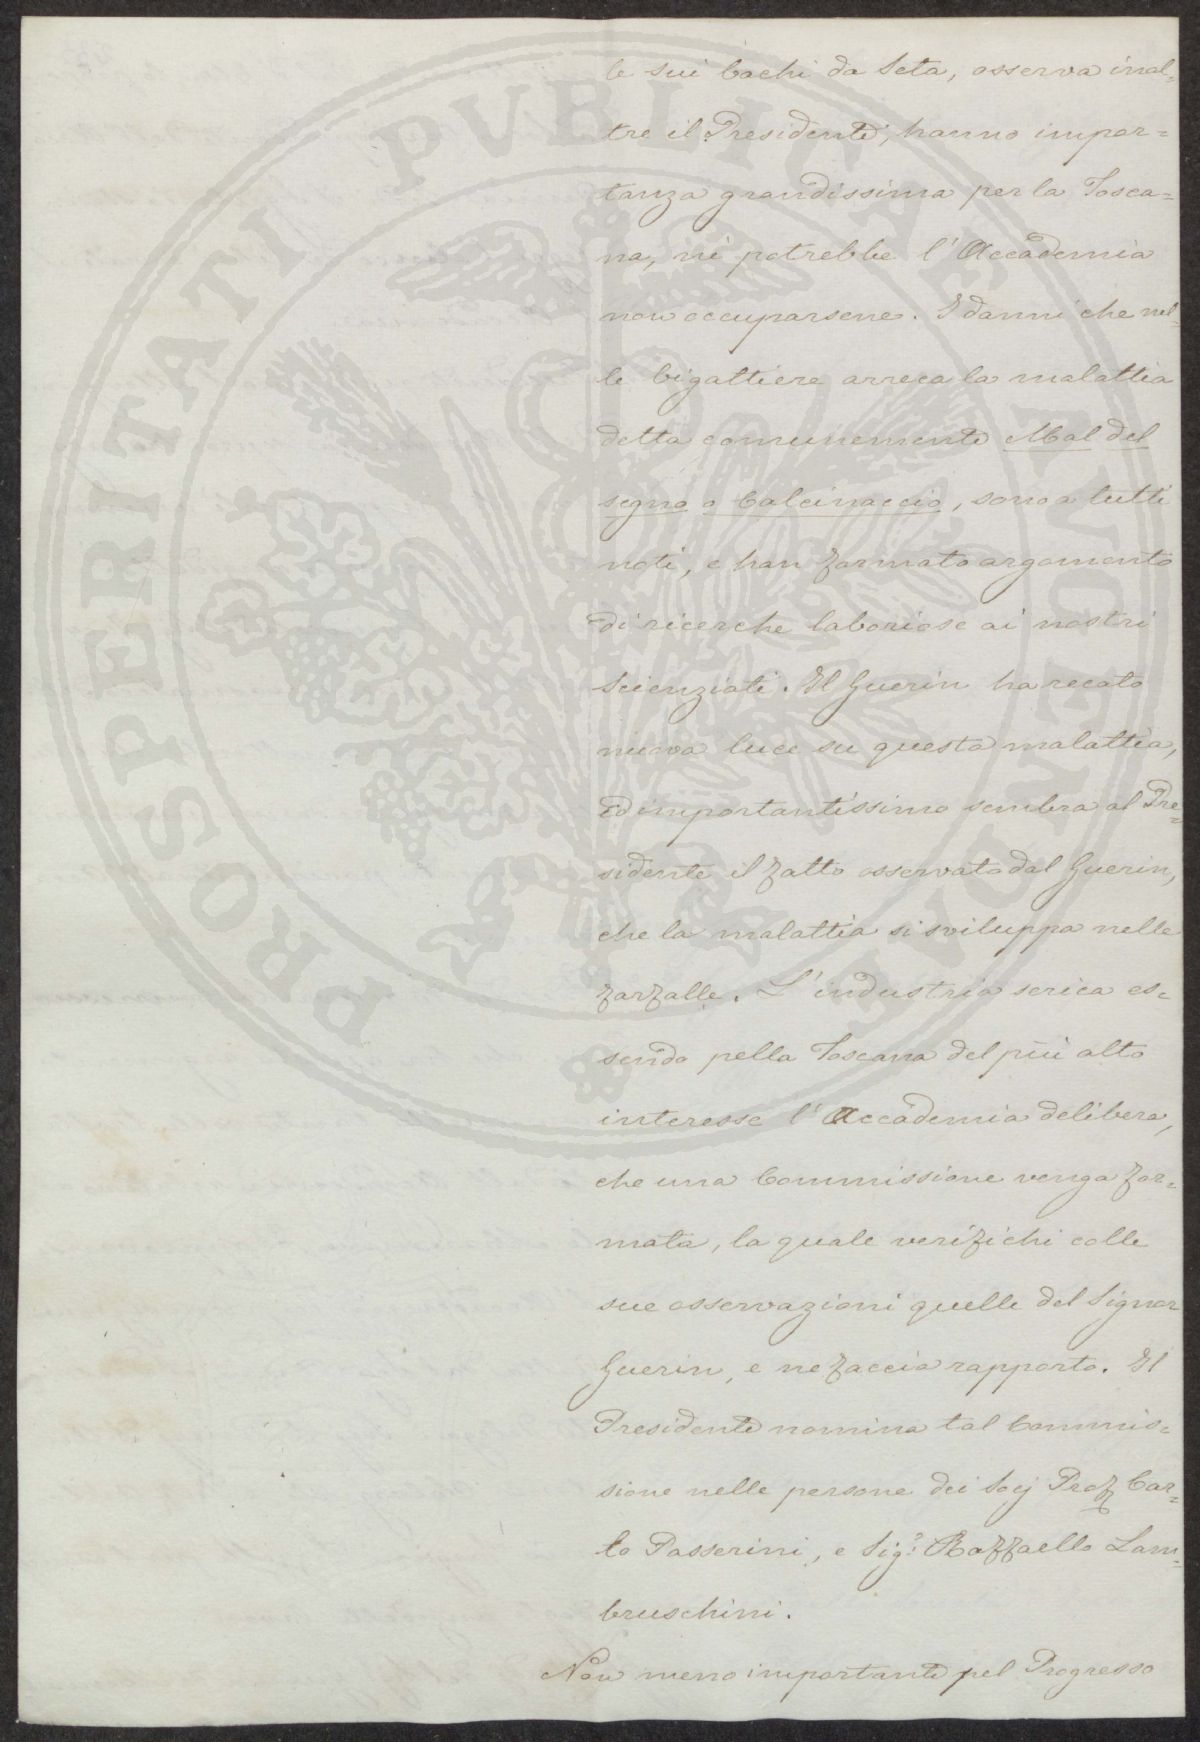 le sui bachi da Seta, osserva inol=
tre il Presidente, hanno impor=
tanza grandissima per la Tosca=
na, nè potrebbe l'Accademia
non occuparsene. I danni che nel=
le bigattiere arreca la malattia
detta comunemente Mal del
segno o Calcinaccio, sono a tutti
noti, e han formato argomento
di ricerche laboriose ai nostri
Scienziati. Il Guerin ha recato
nuova luce su questa malattia,
ed importantissimo sembra al Pre=
sidente il fatto osservato dal Guerin,
che la malattia si sviluppa nelle
farfalle. L'industria serica es=
sendo pella Toscana del più alto
interesse l'Accademia delibera,
che una Commissione venga for=
mata, la quale verifichi colle
sue osservazioni quelle del Signor
Guerin, e ne faccia rapporto. Il
Presidente nomina tal Commis=
sione nelle persone dei Socj Prof Car=
lo Passerini, e Sig.r Raffaello Lam=
bruschini.
Non meno importante pel Progresso
PROSPERITATI PVBLICAE AVGENDAE